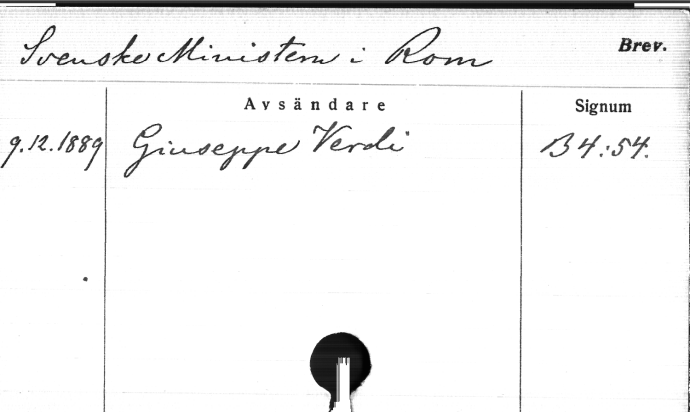 Svenske Ministern i Rom Brev.
Avsändare Signum
9.12.1889 Giuseppe Verdi B 4:54.